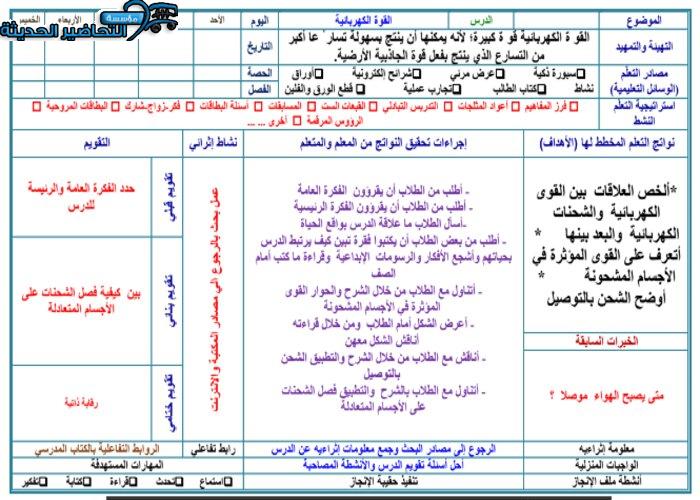 مؤسسة
التحاضير الحديثة
الموضوع الدرس القوة الكهربائية اليوم الأحد الأربعاء الخميس
التهيئة والتمهيد القو ة الكهربائية قو ة كبيرة؛ لأنه يمكنها أن ينتج بسهولة تسار ًعا أكبر التاريخ
من التسارع الذي ينتج بفعل قوة الجاذبية الأرضية.
مصادر التعلم □سبورة ذكية □عرض مرئي □شرائح إلكترونية □أوراق الحصة
(الوسائل التعليمية) نشاط □كتاب الطالب □تجارب عملية □ قطع الورق والفلين الفصل
استراتيجية التعلم □ فرز المفاهيم □ أعواد المثلجات □ التدريس التبادلي □ القبعات الست □ المسابقات □ أسئلة البطاقات □ فكر-زواج-شارك □ البطاقات المروحية
النشط □ الرؤوس المرقمة □ أخرى ... ...
نواتج التعلم المخطط لها (الأهداف) إجراءات تحقيق النواتج من المعلم والمتعلم نشاط إثرائي التقويم
*ألخص العلاقات بين القوى
الكهربائية والشحنات
الكهربائية والبعد بينها *
أتعرف على القوى المؤثرة في
الأجسام المشحونة *
أوضح الشحن بالتوصيل
الخبرات السابقة
متى يصبح الهواء موصلا ؟
- أطلب من الطلاب أن يقرؤون الفكرة العامة
- أطلب من الطلاب أن يقرؤون الفكرة الرئيسية
-أسأل الطلاب ما علاقة الدرس بواقع الحياة
- أطلب من بعض الطلاب أن يكتبوا فقرة تبين كيف يرتبط الدرس
بحياتهم وأشجع الأفكار والرسومات الإبداعية وقراءة ما كتب أمام
الصف
- أتناول مع الطلاب من خلال الشرح والحوار القوى
المؤثرة في الأجسام المشحونة
- أعرض الشكل أمام الطلاب ومن خلال قراءته
أناقش الشكل معهن
- أناقش مع الطلاب من خلال الشرح والتطبيق الشحن
بالتوصيل
- أتناول مع الطلاب بالشرح والتطبيق فصل الشحنات
على الأجسام المتعادلة
عمل بحث بالرجوع الي مصادر المكتبية والانترنت
تقويم قبلي
حدد الفكرة العامة والرئيسة
للدرس
تقويم بنائي
بين كيفية فصل الشحنات على
الأجسام المتعادلة
تقويم ختامي
رقابة ذاتية
معلومة إثرائيه الرجوع إلى مصادر البحث وجمع معلومات إثراءيه عن الدرس رابط تفاعلي الروابط التفاعلية بالكتاب المدرسي
الواجبات المنزلية أحل أسئلة تقويم الدرس والأنشطة المصاحبة المهارات المستهدفة
أنشطة ملف الإنجاز تنفيذ حقيبة الإنجاز □استماع □تحدث □قراءة □كتابة □تفكير